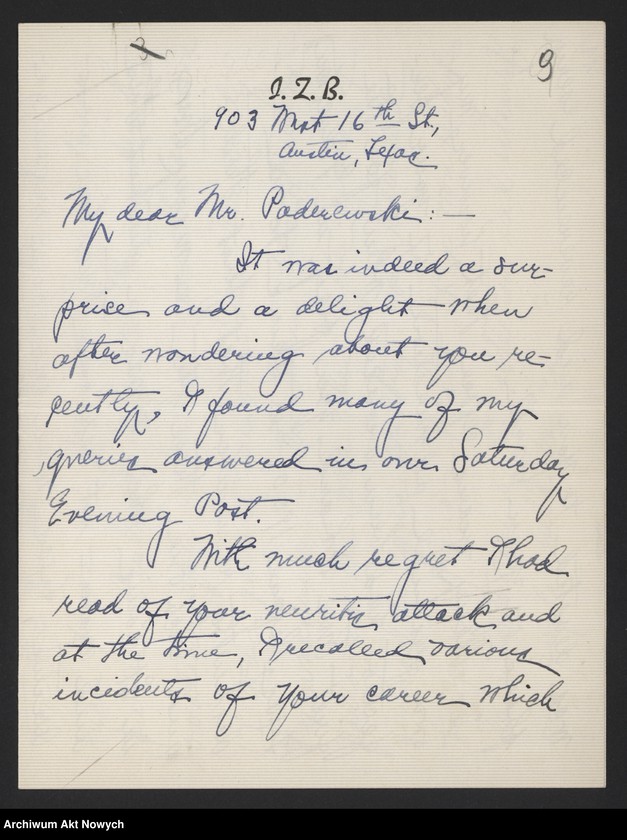 9
I. Z. B.
903 West 16th St.,
Austin, Texas.
My dear Mr. Paderewski: —
It was indeed a sur-
prise and a delight when
after wondering about you re-
cently, I found many of my
queries answered in our Saturday
Evening Post.
With much regret I had
read of your neuritis attack and
at the time, I recalled various
incidents of your career which
Archiwum Akt Nowych